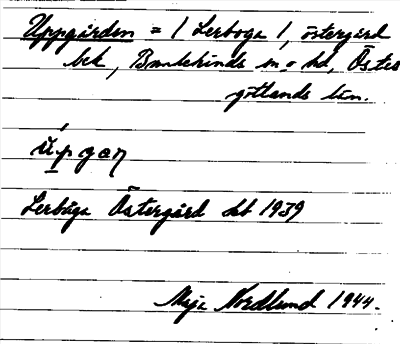 Uppgården = 1 Lerboga 1, östergård
bek, Bankekinds sn o hd, Öster
götlands län.
úpgaŋ
Lerbåga Östergård deb 1939
Maja Nordlund 1944.